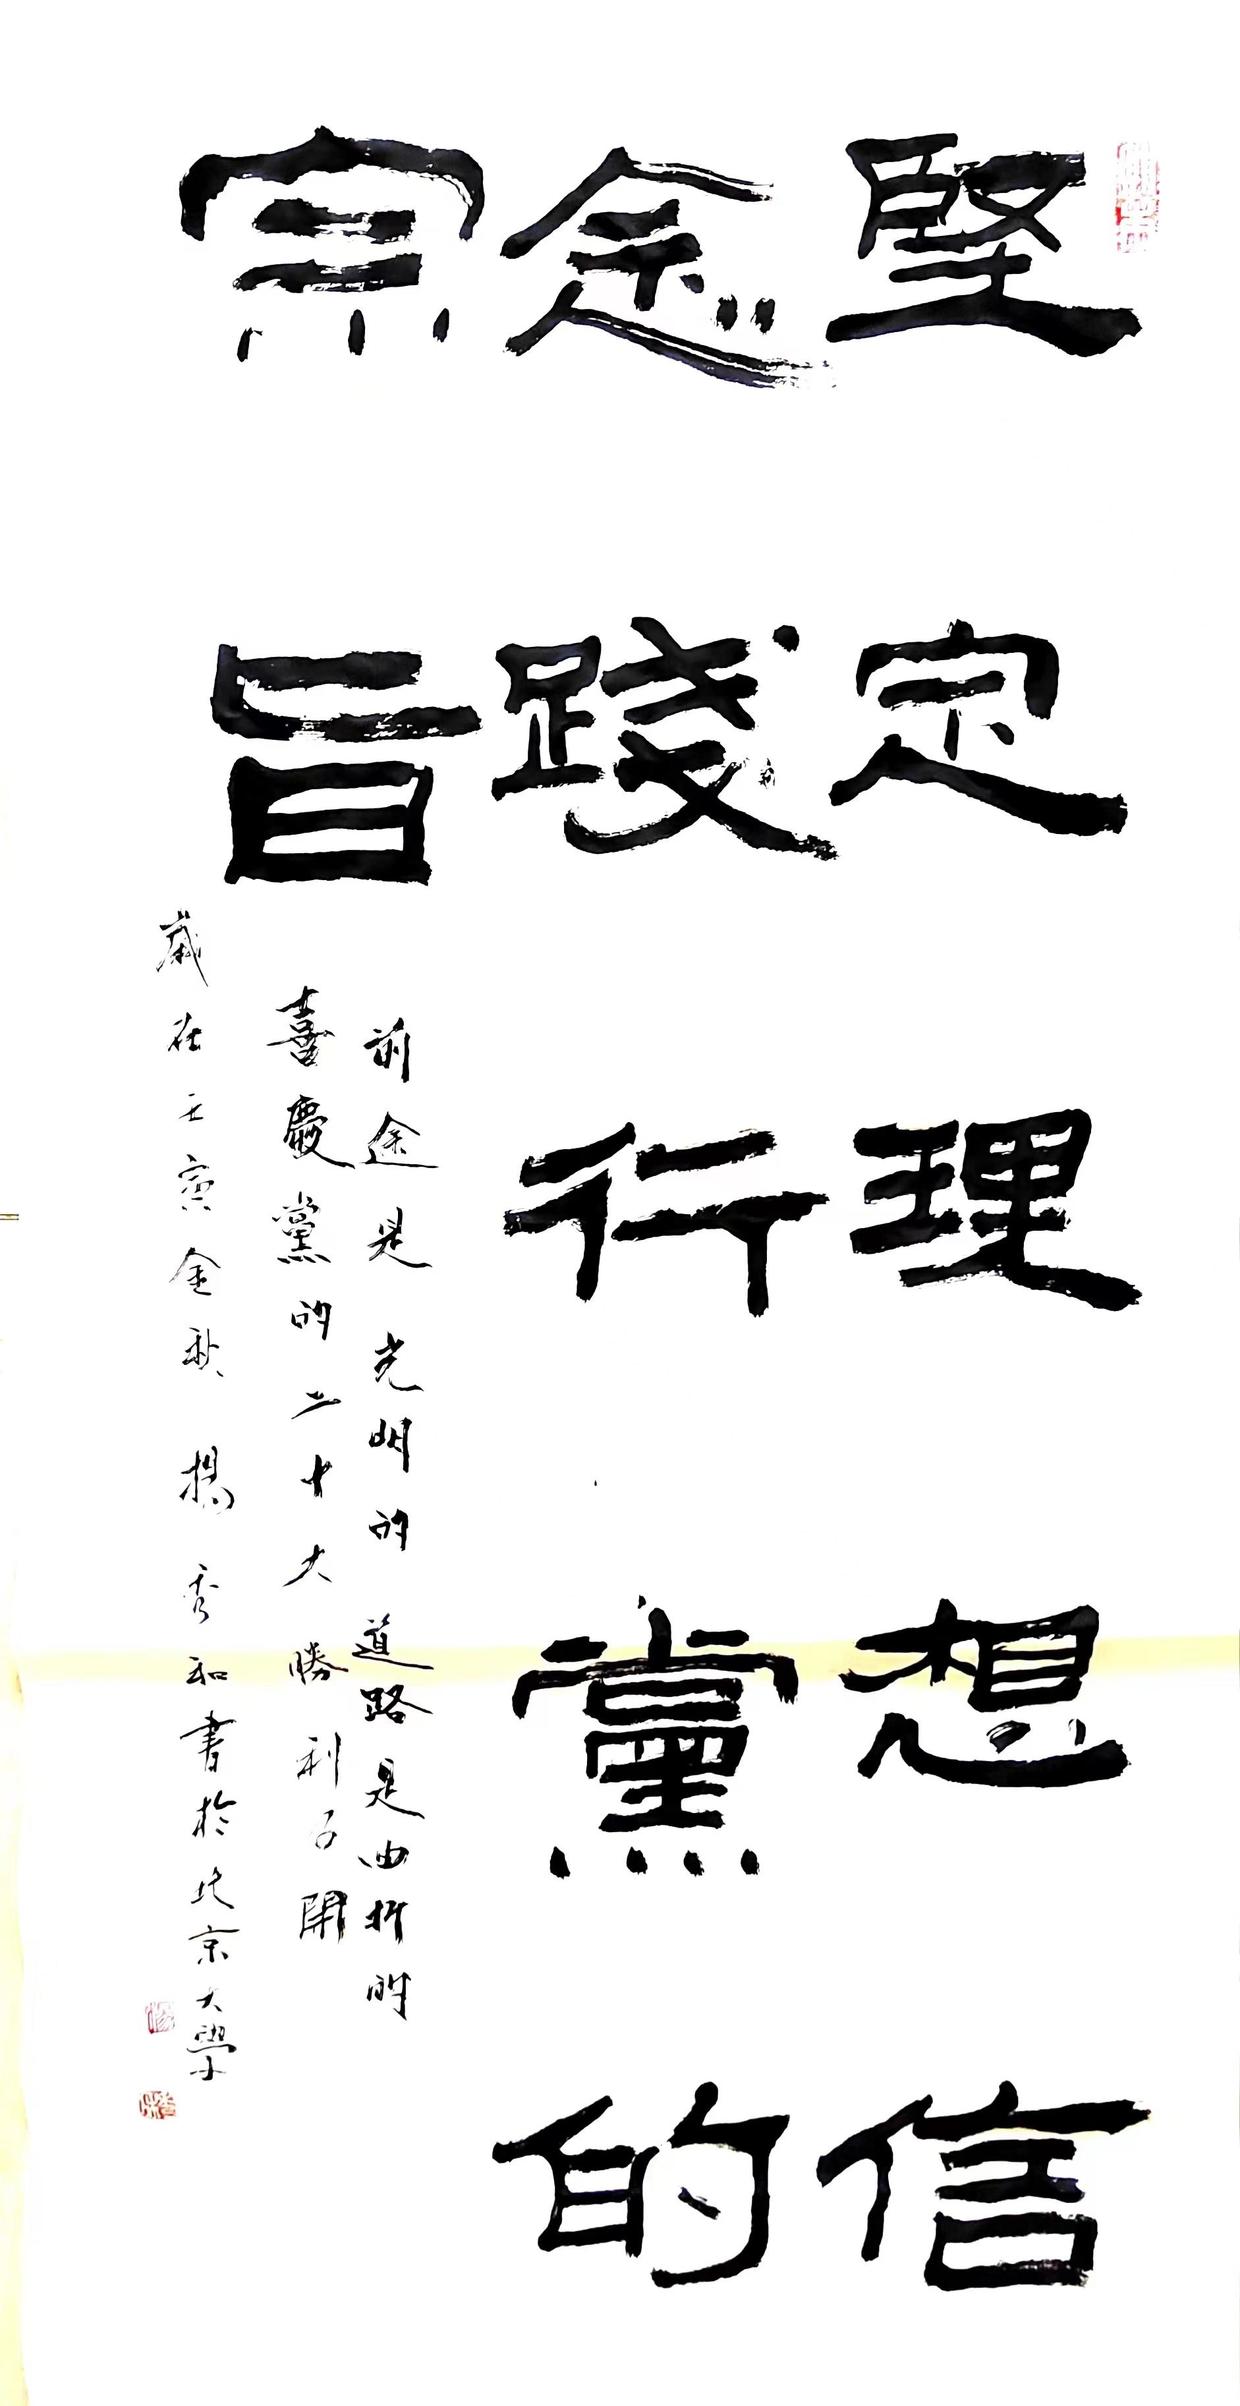 堅定理想信
念踐行黨的
宗旨
前途是光明的道路是曲折的
喜慶黨的二十大勝利召開
歲在壬寅金秋楊秀和書於北京大學